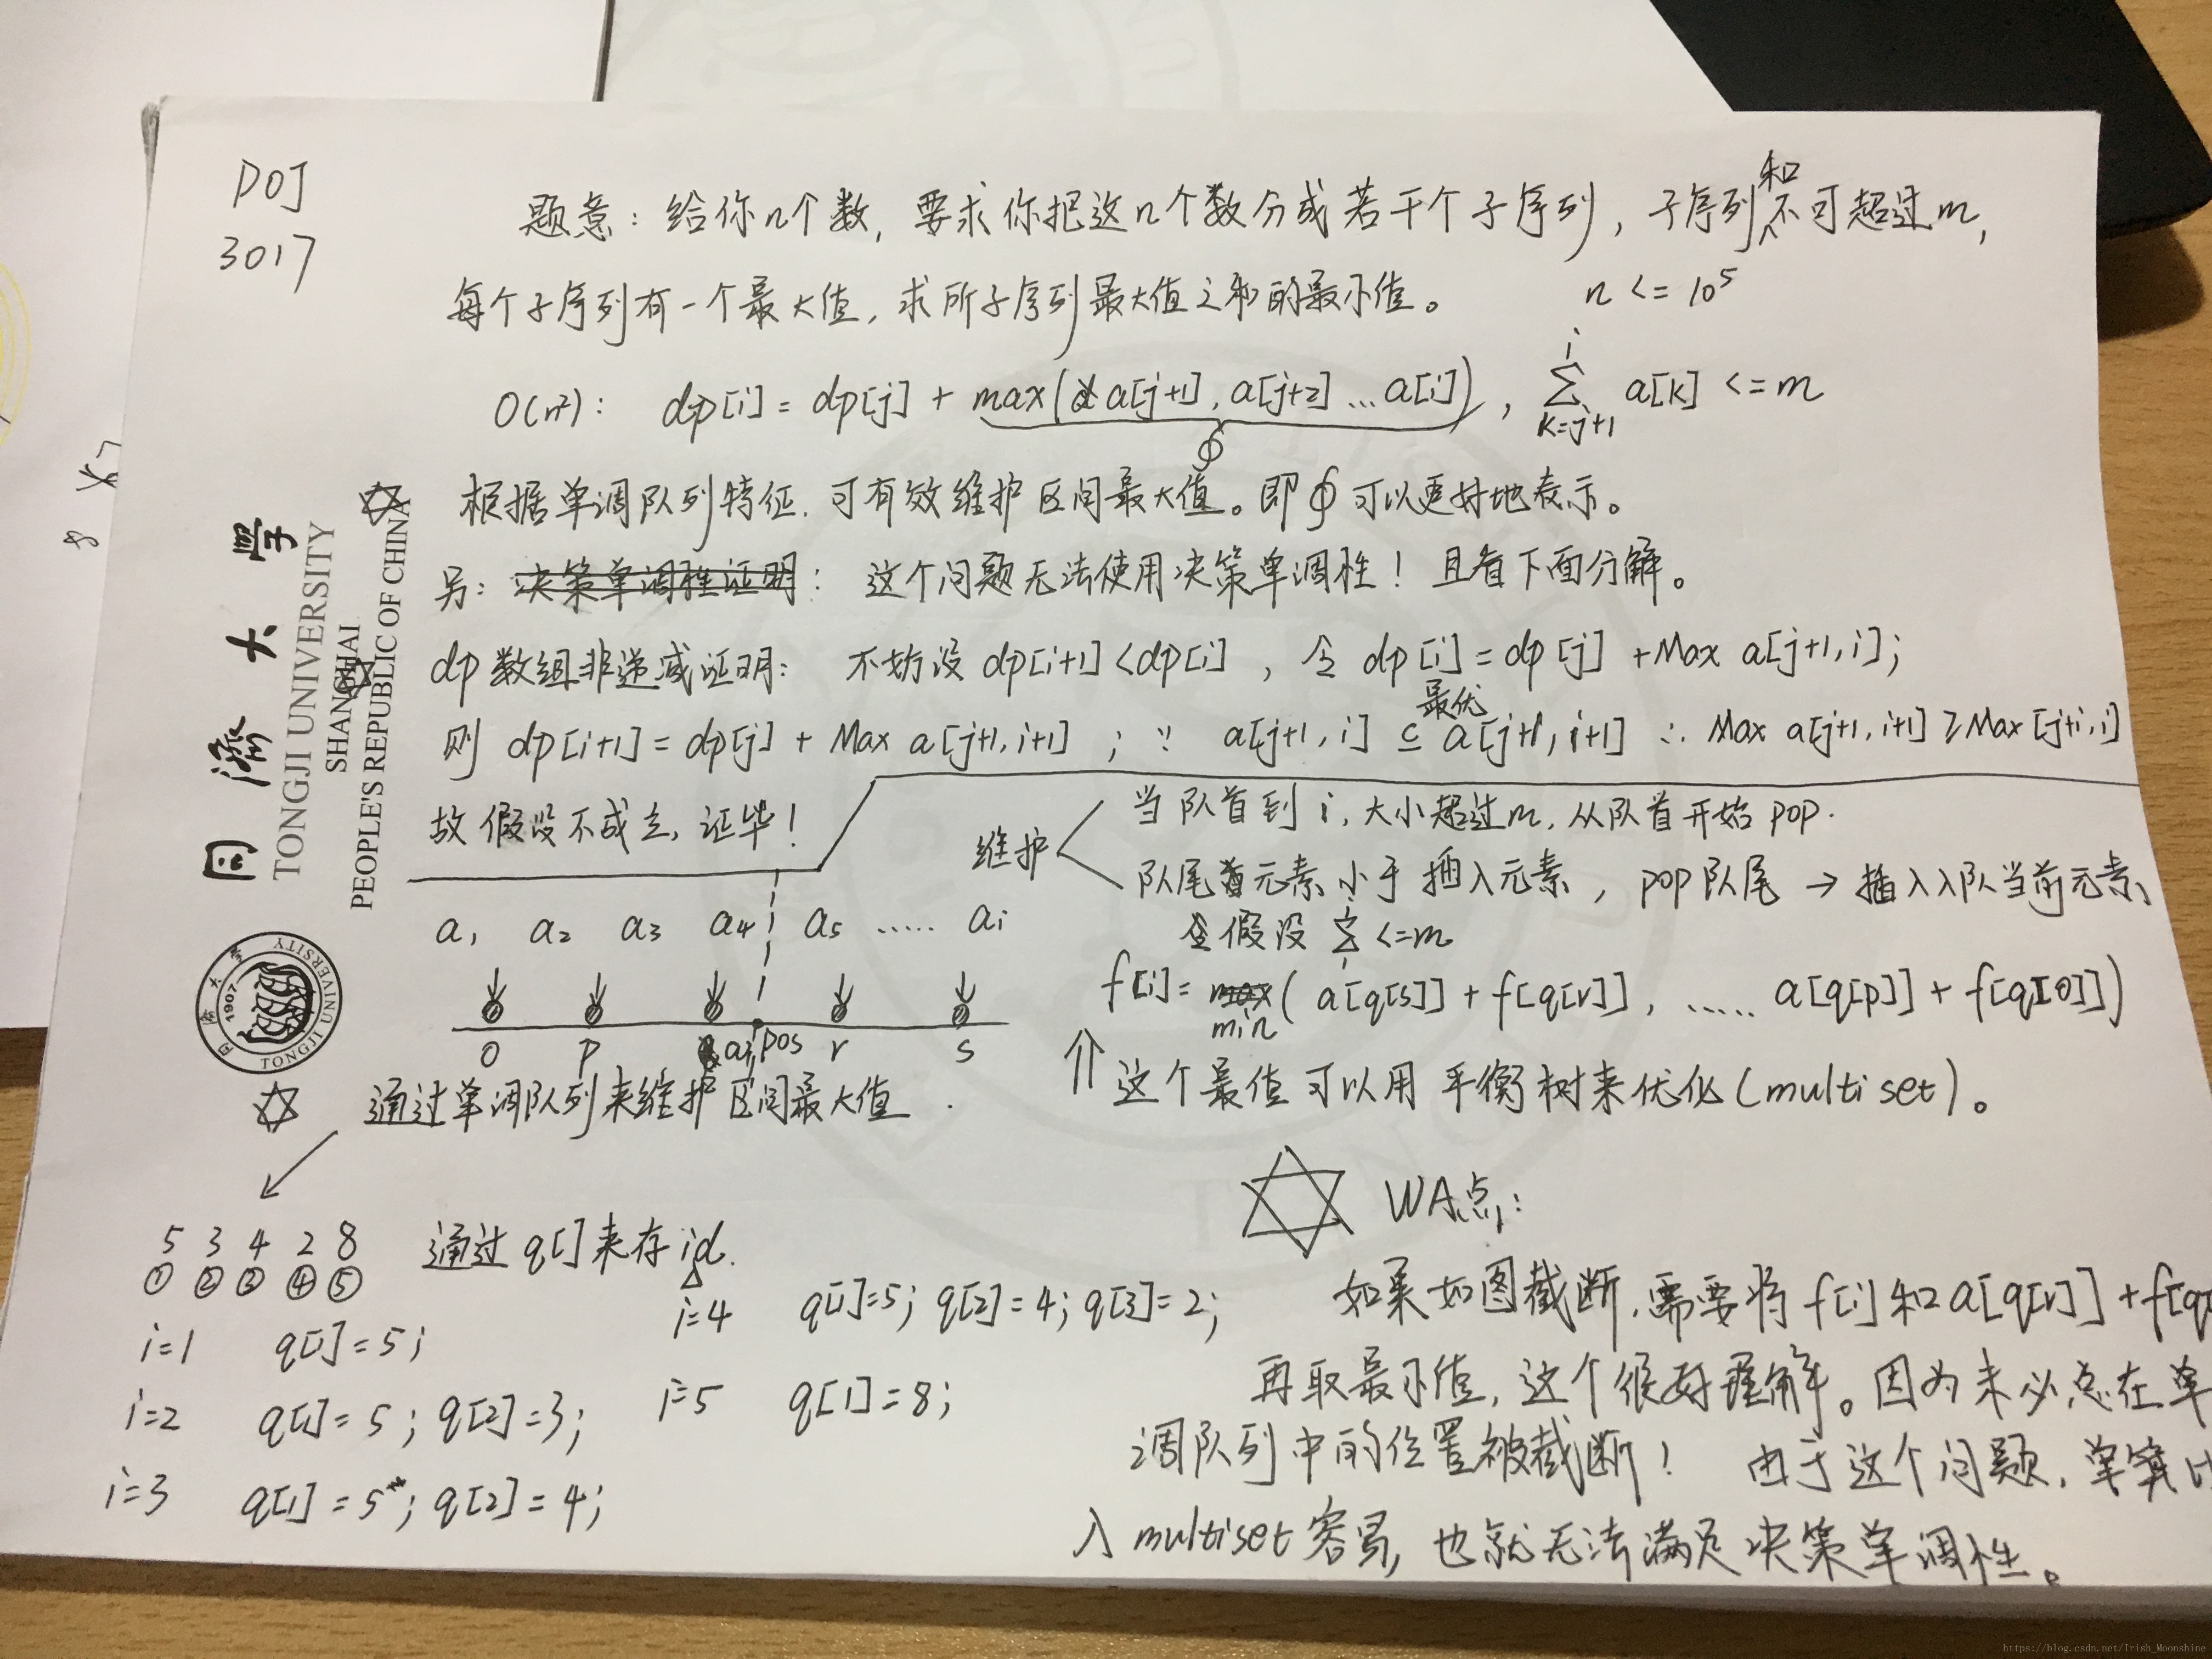 POJ
3017
题意：给你n个数，要求你把这n个数分成若干个子序列，子序列和不可超过m，
每个子序列有一个最大值，求所子序列最大值之和的最小值。 n <= 10^5
O(n²)： dp[i] = dp[j] + max(a[j+1], a[j+2] ... a[i]), ∑_{k=j+1}^{i} a[k] <= m
∮
根据单调队列特征，可有效维护区间最大值。即∮可以更好地表示。
另：决策单调性证明：这个问题无法使用决策单调性！且看下面分解。
dp数组非递减证明： 不妨设 dp[i+1] < dp[i]，令 dp[i] = dp[j] + Max a[j+1, i];
最优
则 dp[i+1] = dp[j] + Max a[j+1, i+1] ; ∵ a[j+1, i] ⊆ a[j+1, i+1] ∴ Max a[j+1, i+1] ≥ Max[j+1, i]
故假设不成立，证毕！
维护
当队首到i，大小超过m，从队首开始pop.
队尾元素小于插入元素，pop队尾 → 插入入队当前元素
a1 a2 a3 a4 a5 ..... ai
假设 ∑ <= m
f[i] = min( a[q[s]] + f[q[r]], ..... a[q[p]] + f[q[o]])
o p pos r s
⇑ 这个最值可以用平衡树来优化(multiset)。
通过单调队列来维护区间最大值.
WA点：
5 3 4 2 8 通过q[]来存id.
① ② ③ ④ ⑤
i=1 q[1]=5;
i=2 q[1]=5; q[2]=3;
i=3 q[1]=5; q[2]=4;
i=4 q[1]=5; q[2]=4; q[3]=2;
i=5 q[1]=8;
如果如图截断，需要将f[i]和a[q[r]]+f[q
再取最小值，这个很好理解。因为未必总在单
调队列中的位置被截断！ 由于这个问题，单
入multiset容易，也就无法满足决策单调性。
同济大学
TONGJI UNIVERSITY
SHANGHAI
PEOPLE'S REPUBLIC OF CHINA
同济大学
1907
TONGJI UNIVERSITY
https://blog.csdn.net/Irish_Moonshine